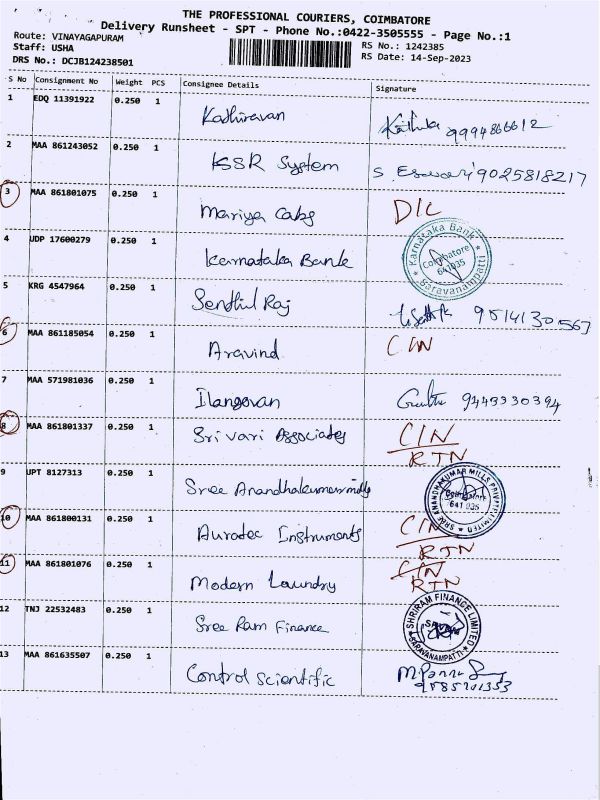 THE PROFESSIONAL COURIERS, COIMBATORE
Delivery Runsheet - SPT - Phone No.:0422-3505555 - Page No.:1
Route: VINAYAGAPURAM
Staff: USHA
DRS No.: DCJB124238501
RS No.: 1242385
RS Date: 14-Sep-2023
S No Consignment No Weight PCS Consignee Details Signature
1 EDQ 11391922 0.250 1 Kathiravan 9994866612
2 MAA 861243052 0.250 1 KSR System S. Eswari 9025818217
3 MAA 861801075 0.250 1 Mariya Cabs D/C
4 UDP 17600279 0.250 1 Karnataka Bank Karnataka Bank Coimbatore 641035 Saravanampatti
5 KRG 4547964 0.250 1 Senthil Raj
6 MAA 861185054 0.250 1 Aravind C/N
7 MAA 571981036 0.250 1 Ilangovan 9443330394
8 MAA 861801337 0.250 1 Sri Vari Associates C/N
RTN
9 UPT 8127313 0.250 1 Sree Anandhakumar mills SREE ANANDHAKUMAR MILLS PRIVATE LIMITED Coimbatore 641 035
10 MAA 861800131 0.250 1 Aurotec Instruments C/N
RTN
11 MAA 861801076 0.250 1 Modern Laundry C/N
RTN
12 TNJ 22532483 0.250 1 Sree Ram Finance SHRIRAM FINANCE LIMITED SARAVANAMPATTI
13 MAA 861635507 0.250 1 Control Scientific